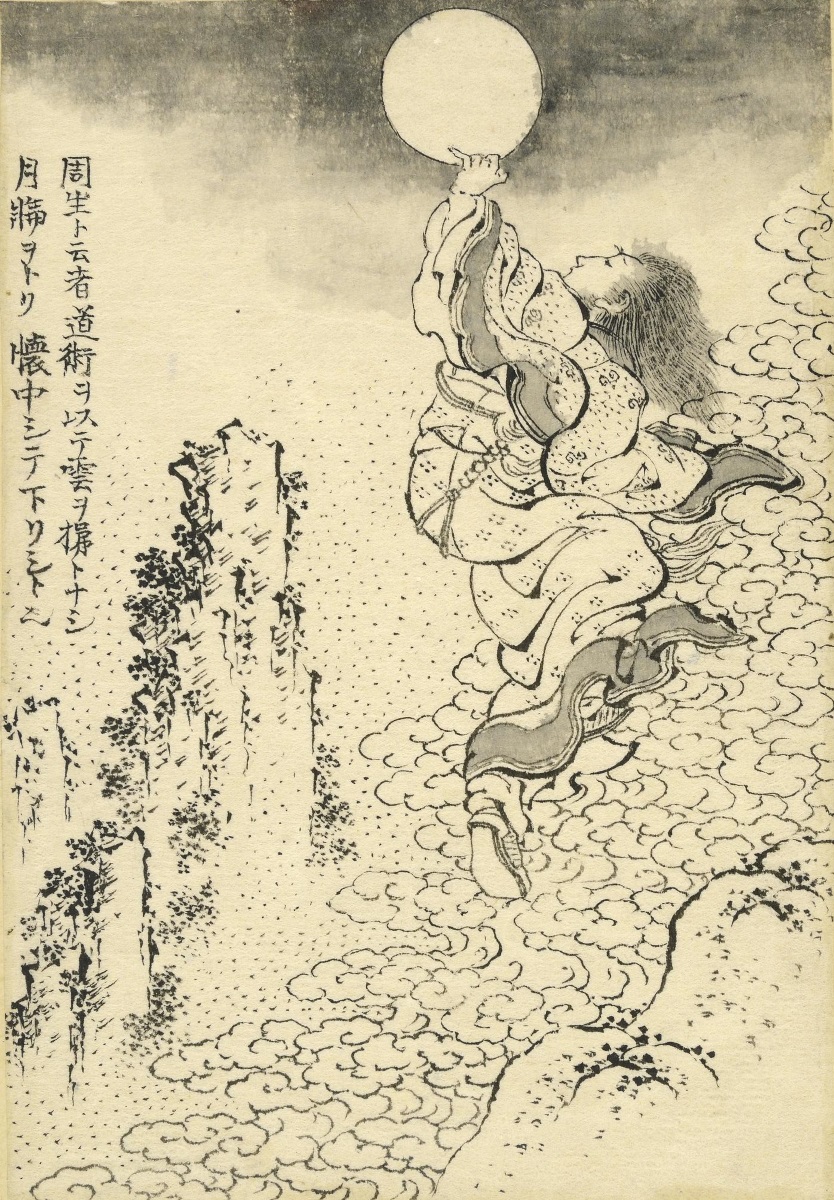 周生ト云者道術ヲ以テ雲ヲ梯トナシ
月輪ヲトリ 懐中シテ下リシト云